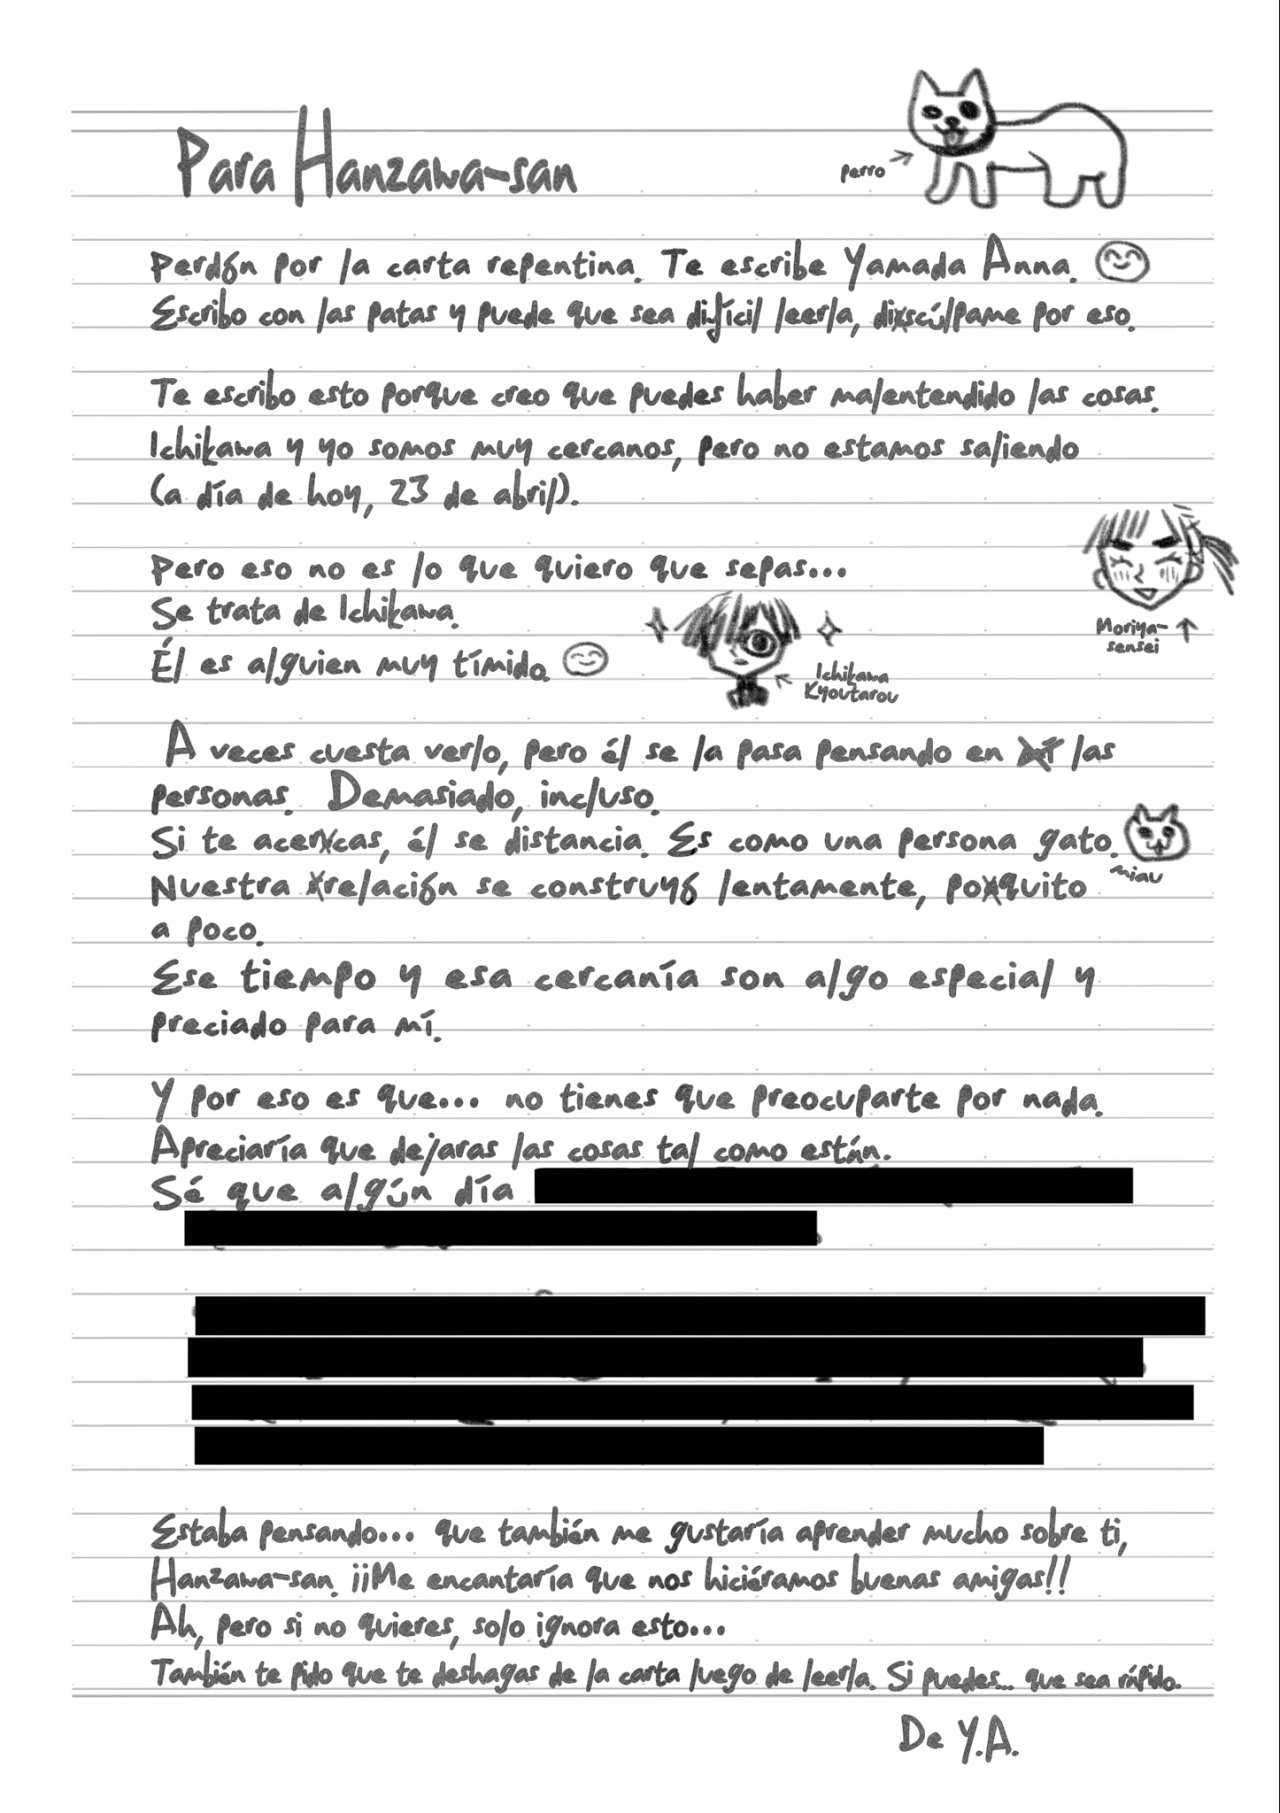 Para Hanzawa-san
perro
Perdón por la carta repentina. Te escribe Yamada Anna.
Escribo con las patas y puede que sea difícil leerla, discúlpame por eso.
Te escribo esto porque creo que puedes haber malentendido las cosas.
Ichikawa y yo somos muy cercanos, pero no estamos saliendo
(a día de hoy, 23 de abril).
Pero eso no es lo que quiero que sepas...
Se trata de Ichikawa.
Él es alguien muy tímido.
Moriya-
sensei
Ichikawa
Kyoutarou
A veces cuesta verlo, pero él se la pasa pensando en las
personas. Demasiado, incluso.
Si te acercas, él se distancia. Es como una persona gato.
miau
Nuestra relación se construyó lentamente, poquito
a poco.
Ese tiempo y esa cercanía son algo especial y
preciado para mí.
Y por eso es que... no tienes que preocuparte por nada.
Apreciaría que dejaras las cosas tal como están.
Sé que algún día
Estaba pensando... que también me gustaría aprender mucho sobre ti,
Hanzawa-san. ¡¡Me encantaría que nos hiciéramos buenas amigas!!
Ah, pero si no quieres, solo ignora esto...
También te pido que te deshagas de la carta luego de leerla. Si puedes... que sea rápido.
De Y.A.